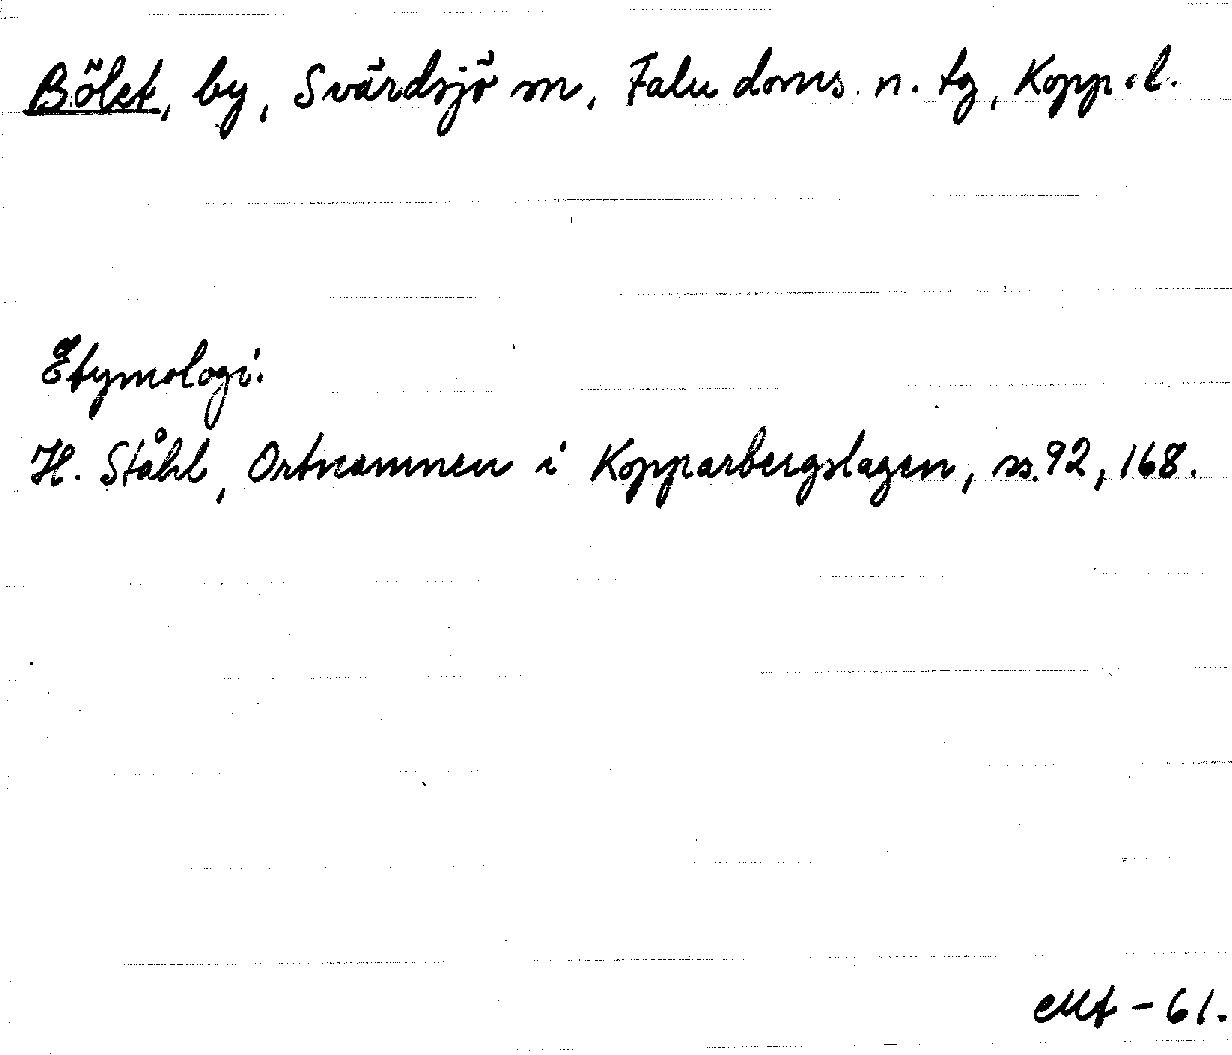 Bölet, by, Svärdsjö sn, Falu doms. n. tg, Kopp. l.
Etymologi:
H. Ståhl, Ortnamnen i Kopparbergslagen, ss. 92, 168.
- 61.